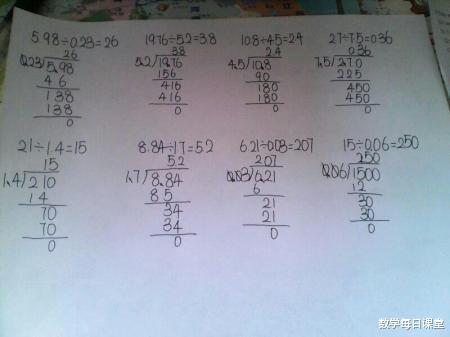 5.98÷0.23=26
26
0.23/5.98
46
138
138
0
19.76÷5.2=3.8
3.8
5.2/19.76
156
416
416
0
10.8÷4.5=2.4
2.4
4.5/10.8
90
180
180
0
2.7÷7.5=0.36
0.36
7.5/2.70
225
450
450
0
21÷1.4=15
15
1.4/210
14
70
70
0
8.84÷1.7=5.2
5.2
1.7/8.84
85
34
34
0
6.21÷0.03=207
207
0.03/6.21
6
21
21
0
15÷0.06=250
250
0.06/1500
12
30
30
0
数学每日课堂